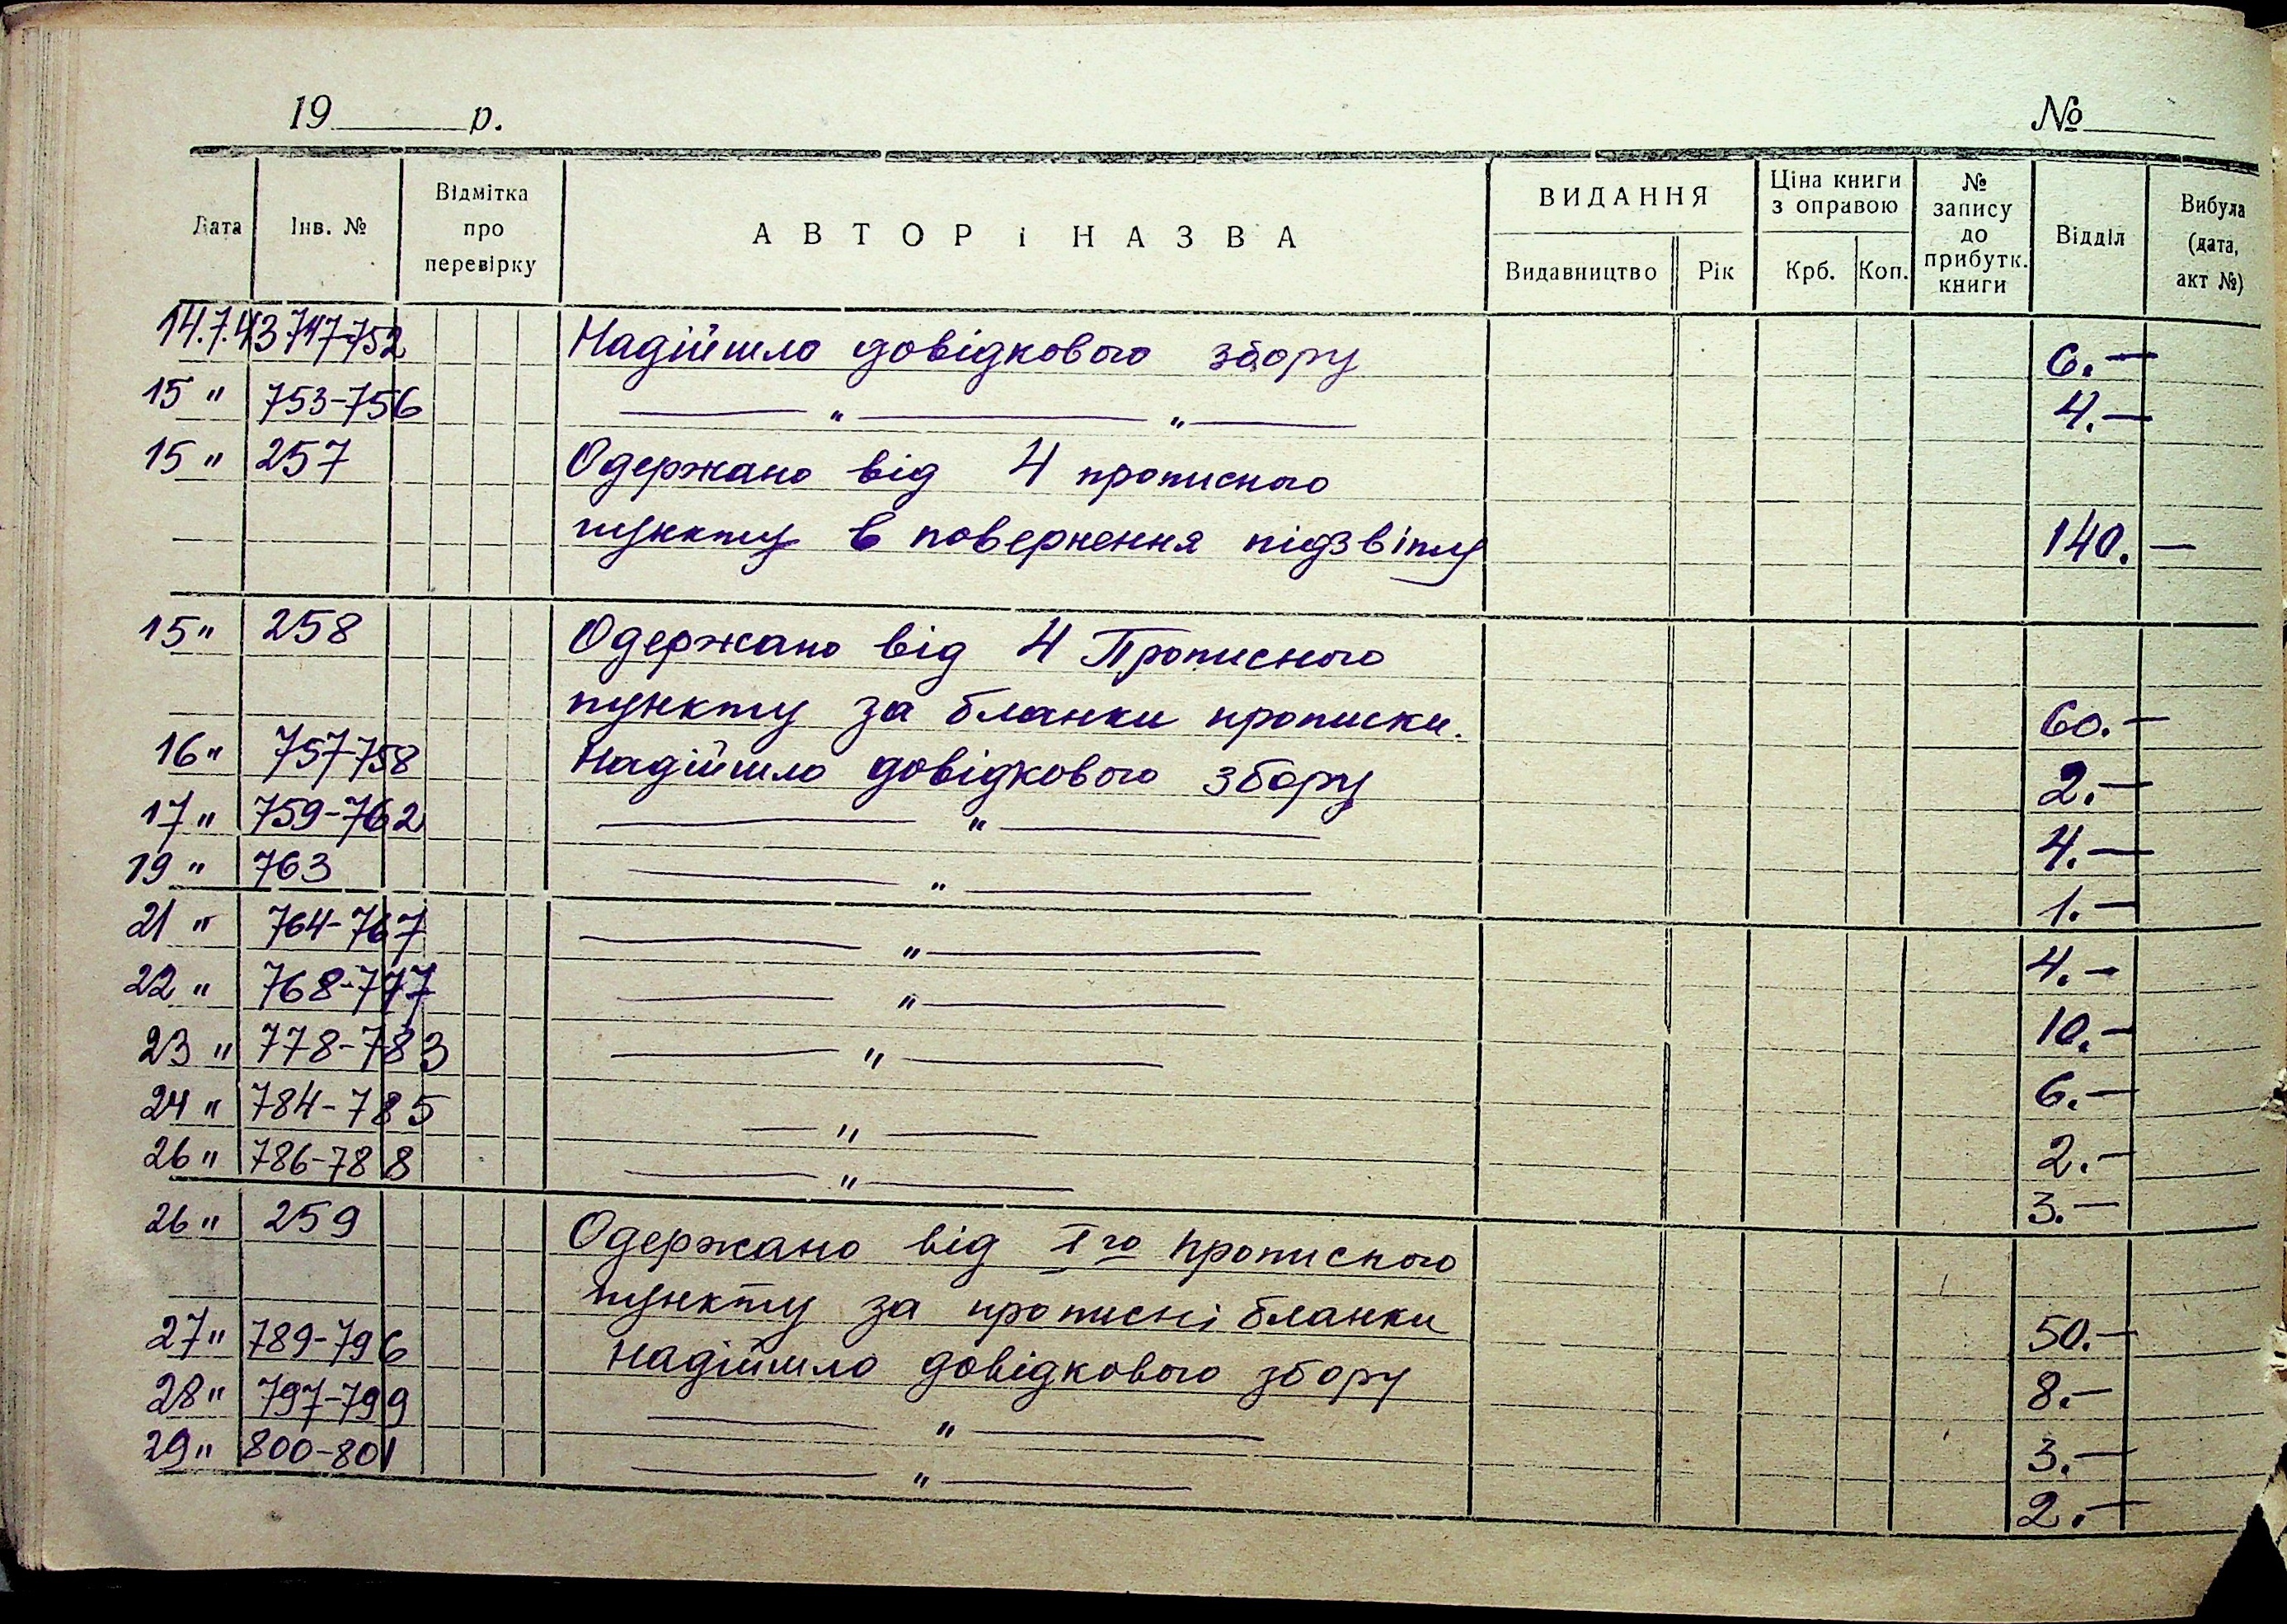 19 р. №
Дата Інв. № Відмітка про перевірку АВТОР і НАЗВА ВИДАННЯ Видавництво Рік Ціна книги з оправою Крб. Коп. № запису до прибутк. книги Відділ Вибула (дата, акт №)
14.7.43 747-752 Надійшло довідкового збору 6.—
15 " 753-756 — " — " — 4.—
15 " 257 Одержано від 4 прописного
пункту в повернення підзвіту 140.—
15 " 258 Одержано від 4 Прописного
пункту за бланки прописки. 60.—
16 " 757-758 Надійшло довідкового збору 2.—
17 " 759-762 — " — 4.—
19 " 763 — " — 1.—
21 " 764-767 — " — 4.—
22 " 768-777 — " — 10.—
23 " 778-783 — " — 6.—
24 " 784-785 — " — 2.—
26 " 786-788 — " — 3.—
26 " 259 Одержано від І го прописного
пункту за прописні бланки 50.—
27 " 789-796 Надійшло довідкового збору 8.—
28 " 797-799 — " — 3.—
29 " 800-801 — " — 2.—